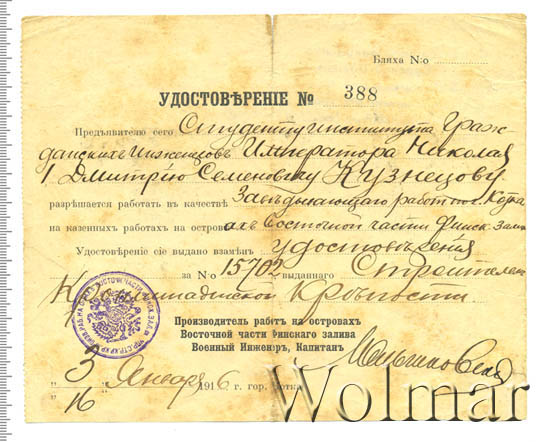 Бляха N:o
УДОСТОВѢРЕНІЕ № 388
Предъявителю сего Студенту института Граж
данскихъ Инженеровъ Императора Николая
I Дмитрію Семеновичу Кузнецову
разрѣшается работать въ качествѣ Завѣдывающего работ
на казенныхъ работахъ на островахъ Восточной части Финск. залива
Удостовѣреніе сіе выдано взамѣнъ удостовѣренія
за No 15702 выданнаго Строителемъ
Кронштадтской Крѣпости
Производитель работъ на островахъ
Восточной части Финскаго залива
Военный Инженеръ, Капитанъ
„3 Января 1916 г. гор. Котка
16
Wolmar